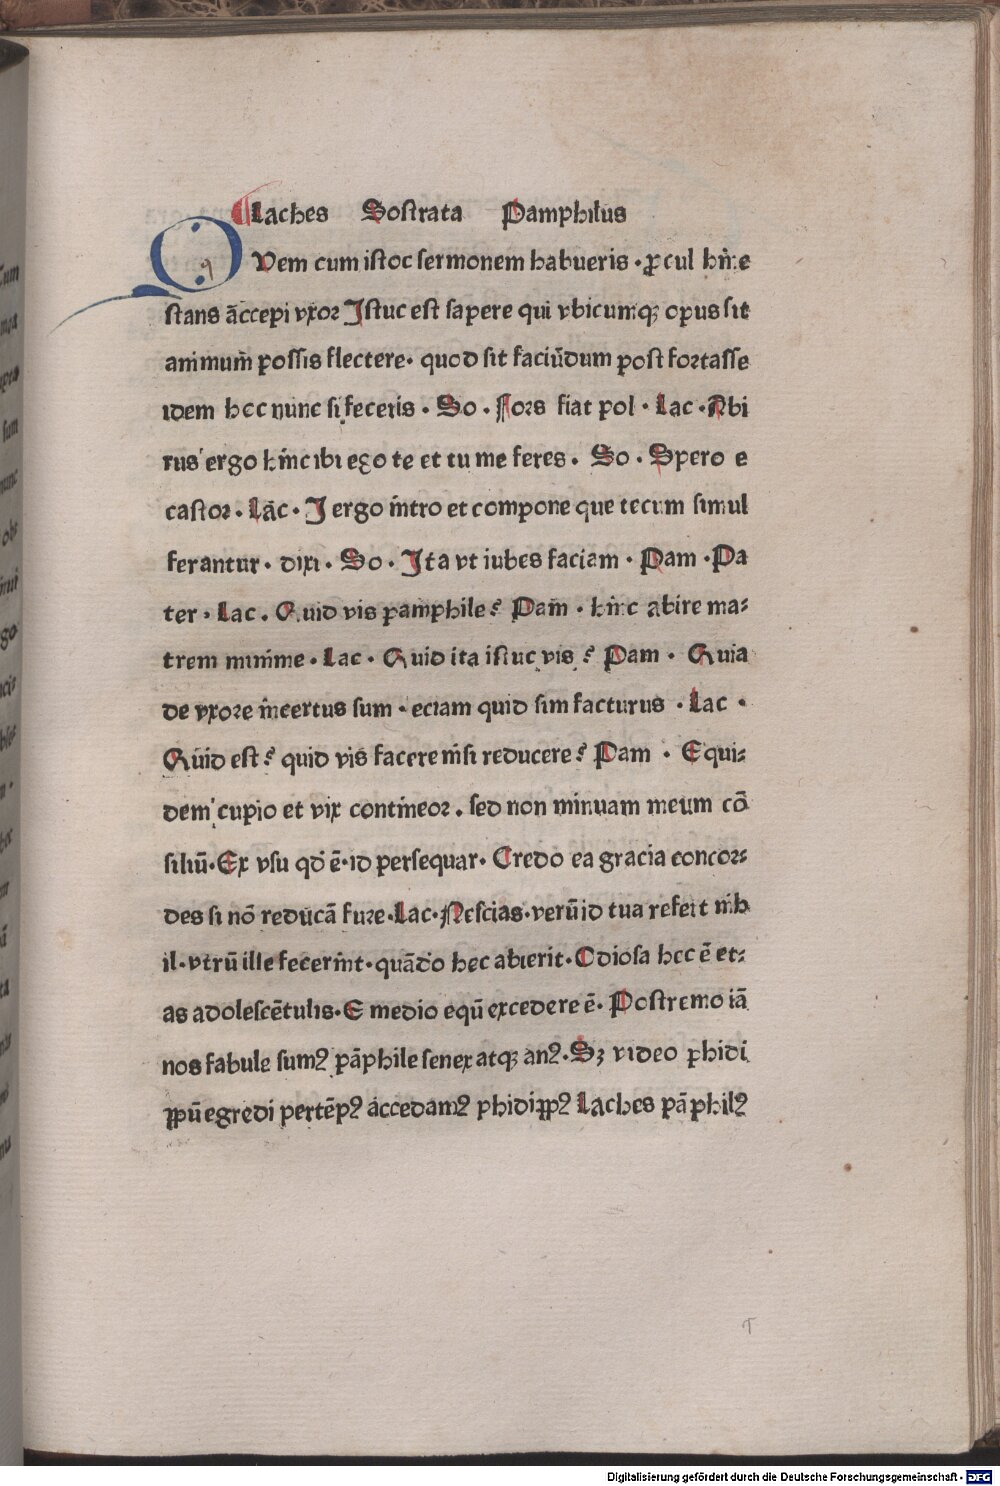 Laches Sostrata Pamphilus
QVem cum istoc sermonem habueris · ꝓcul hinc
stans āccepi vxor Istuc est sapere qui vbicumqꝫ opus sit
animum̄ possis flectere · quod sit faciūdum post fortasse
idem hec nunc si feceris · So · Fors fiat pol · Lac · Abi
rus ergo hinc ibi ego te et tu me feres · So · Spero e
castor · Lac · I ergo intro et compone que tecum simul
ferantur · dixi · So · Ita vt iubes faciam · Pam · Pa
ter · Lac · Quid vis pamphile? Pam · hinc abire ma⸗
trem minime · Lac · Quid ita istuc vis? Pam · Quia
de vxore incertus sum · eciam quid sim facturus · Lac ·
Quid est? quid vis facere nisi reducere? Pam · Equi⸗
dem cupio et vix contineor · sed non minuam meum cō
siliū · Ex vsu qđ ē · id persequar · Credo ea gracia concor⸗
des si nō reducā fure · Lac · Nescias · verū id tua refert nih
il · vtrū ille fecerint · quādo hec abierit · Odiosa hec ē et⸗
as adolescētulis · E medio equū excedere ē · Postremo iā
nos fabule sumꝰ pāphile senex atqꝫ anꝰ · Sꝫ video phidi
ꝓpū egredi pertēpꝰ accedamꝰ phidiꝓpꝰ Laches pāphilꝰ
Digitalisierung gefördert durch die Deutsche Forschungsgemeinschaft · DFG